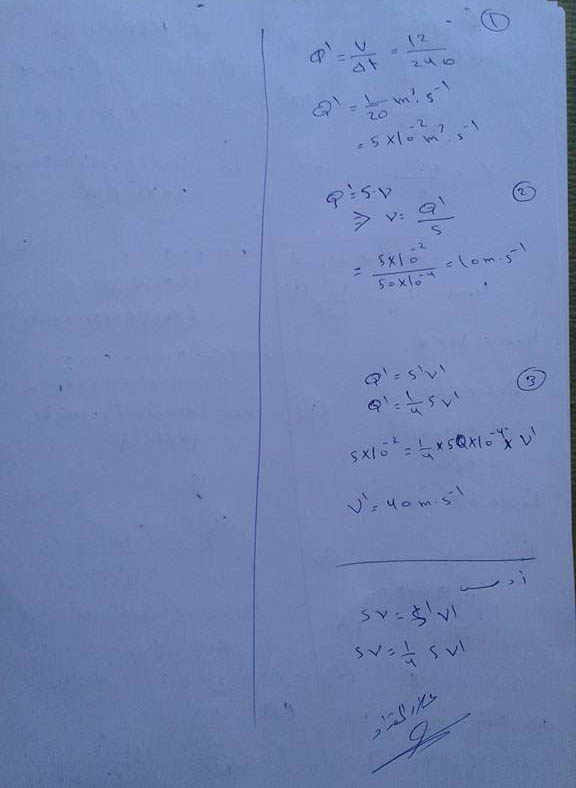 ①
Q' = V/Δt = 12/240
Q' = 1/20 m³.s⁻¹
= 5×10⁻² m³.s⁻¹
②
Q' = S.V
⇒ V = Q'/S
= 5×10⁻²/50×10⁻⁴ = 10 m.s⁻¹
③
Q' = S'V'
Q' = 1/4 S V'
5×10⁻² = 1/4 × 50×10⁻⁴ × V'
V' = 40 m.s⁻¹
SV = S'V'
SV = 1/4 S V'